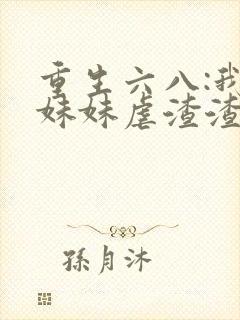 重生六八:我
妹妹虐渣渣
孫月沐